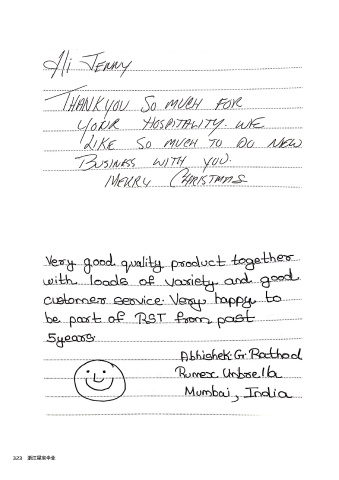 Hi Jenny
THANK YOU SO MUCH FOR
YOUR HOSPITALITY. WE
LIKE SO MUCH TO DO NEW
BUSINESS WITH YOU.
MERRY CHRISTMAS
Very good quality product together
with loads of variety and good
customer service. Very happy to
be part of RST from past
5years
Abhishek G. Rathod
Rumex Umbrella
Mumbai, India
323